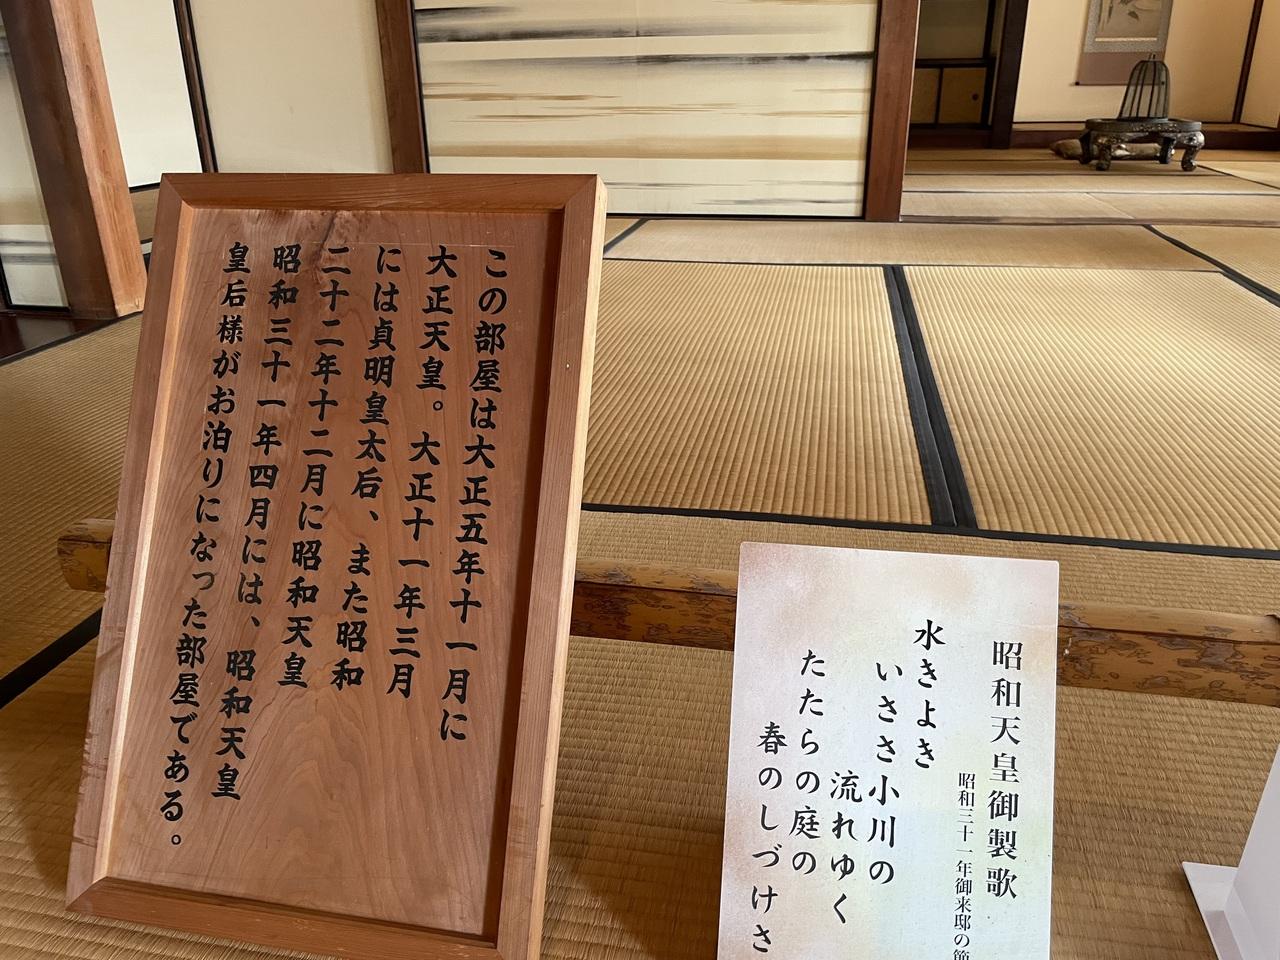 この部屋は大正五年十一月に
大正天皇。大正十一年三月
には貞明皇太后、また昭和
二十二年十二月に昭和天皇
昭和三十一年四月には、昭和天皇
皇后様がお泊りになった部屋である。
昭和天皇御製歌
昭和三十一年御来邸の節
水きよき
いささ小川の
流れゆく
たたらの庭の
春のしづけさ